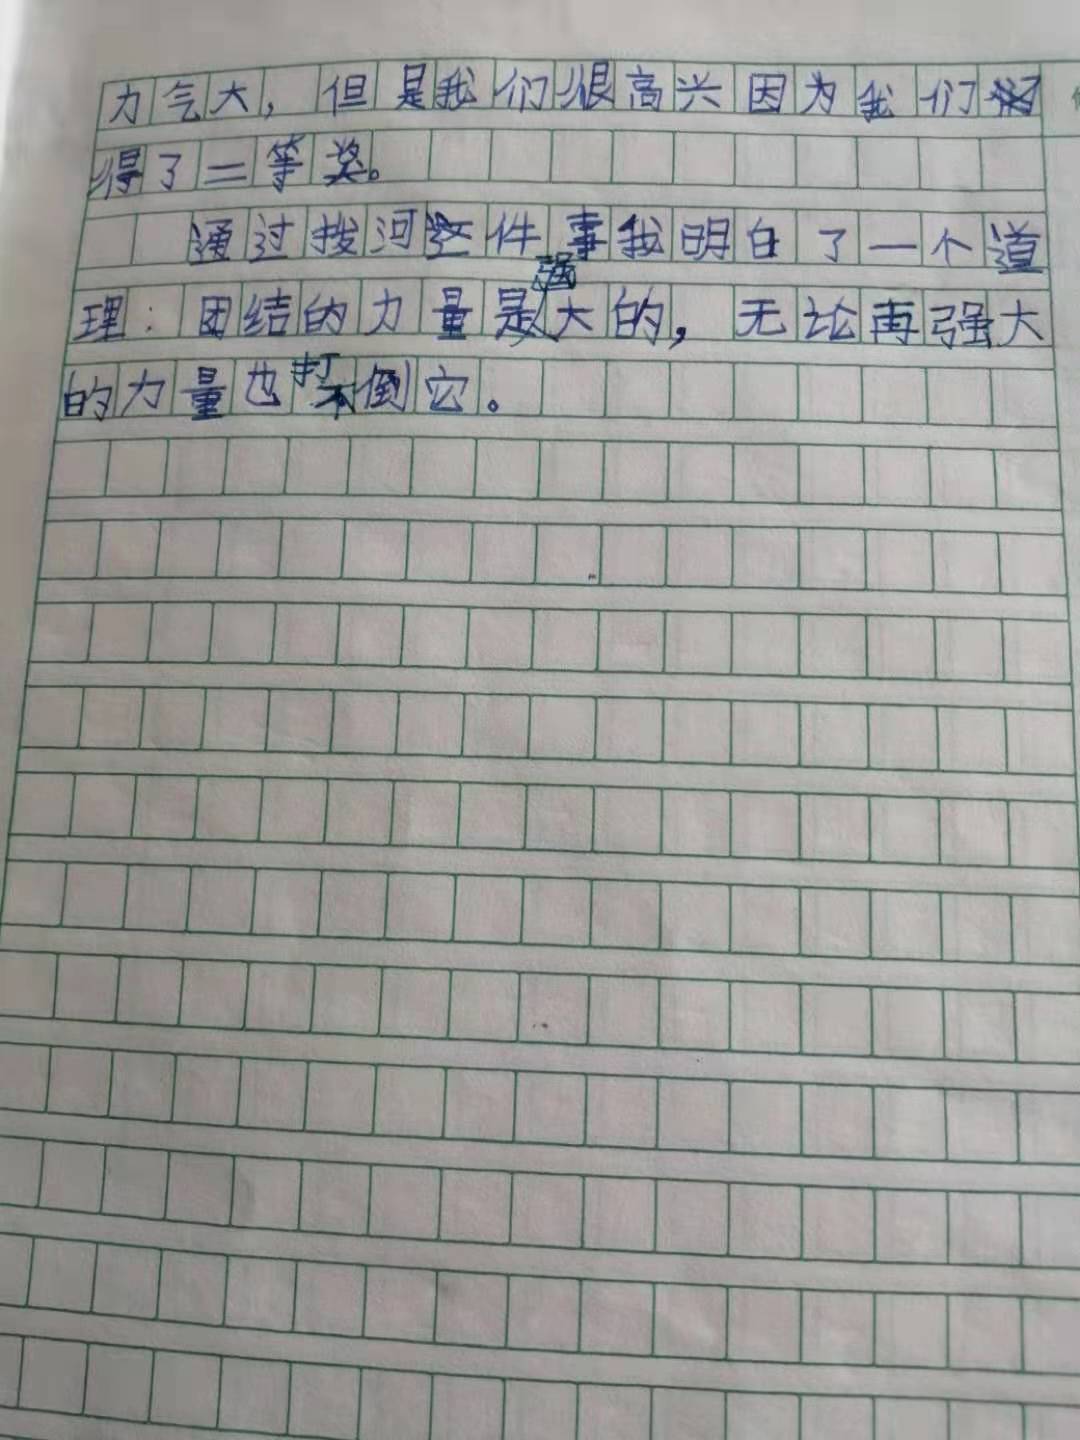 力气大，但是我们很高兴因为我们
得了二等奖。
通过拨河这件事我明白了一个道
理：团结的力量是强大的，无论再强大
的力量也打不倒它。